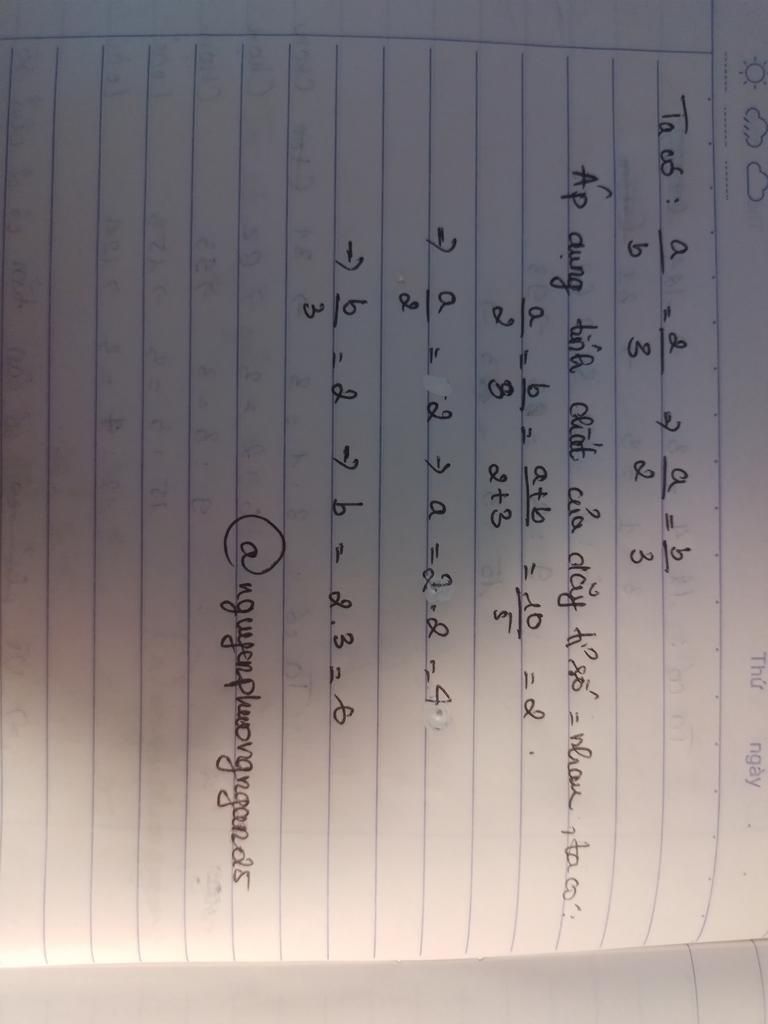 Thứ ngày
Ta có : a/b = 2/3 => a/2 = b/3
Áp dụng tính chất của dãy tỉ số = nhau, ta có :
a/2 = b/3 = a+b/2+3 = 10/5 = 2.
=> a/2 = 2 => a = 2.2 = 4
=> b/3 = 2 => b = 2.3 = 6
@nguyenphuongngands